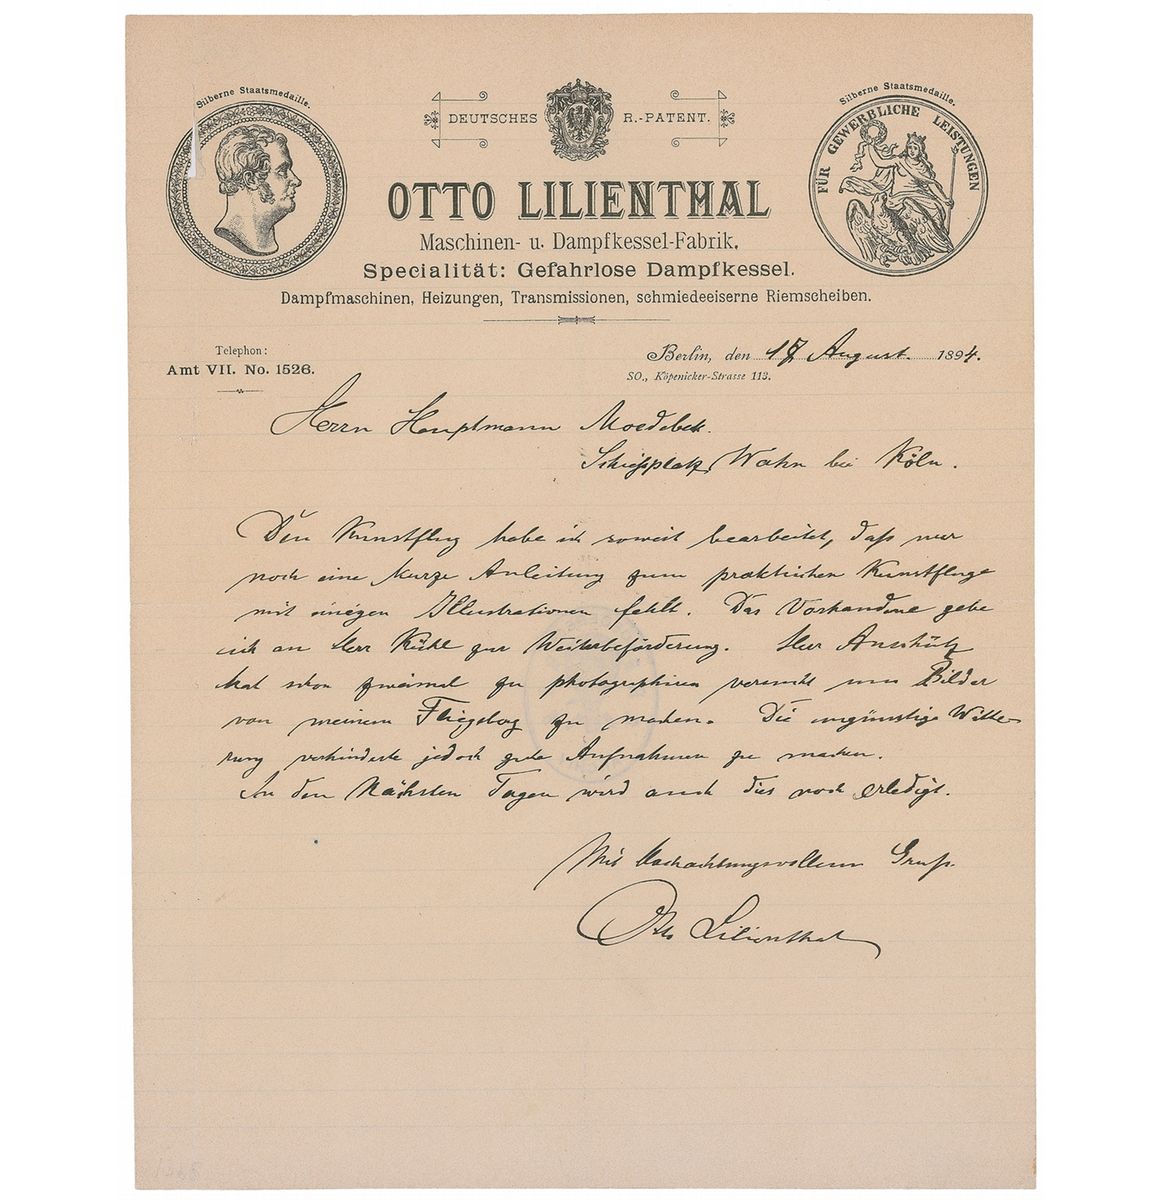 Silberne Staatsmedaille.
Silberne Staatsmedaille.
FÜR GEWERBLICHE LEISTUNGEN
DEUTSCHES R.-PATENT.
OTTO LILIENTHAL
Maschinen- u. Dampfkessel-Fabrik.
Specialität: Gefahrlose Dampfkessel.
Dampfmaschinen, Heizungen, Transmissionen, schmiedeeiserne Riemscheiben.
Telephon:
Amt VII. No. 1526.
Berlin, den 17 August. 1894.
SO., Köpenicker-Strasse 113.
Herrn Hauptmann Moedebek.
Schießplatz Wahn bei Köln.
Den Kunstflug habe ich soweit bearbeitet, daß nur
noch eine kurze Anleitung zum praktischen Kunstfluge
mit einigen Illustrationen fehlt. Das Vorhandene gebe
ich an Herr Kühl zur Weiterbeförderung. Herr Anschütz
hat schon zweimal zu photographiren versucht um Bilder
von meinem Fliegeberg zu machen. Die ungünstige Witte-
rung verhinderte jedoch gute Aufnahmen zu machen.
In den Nächsten Tagen wird auch dies noch erledigt.
Mit Hochachtungsvollem Gruß
Otto Lilienthal